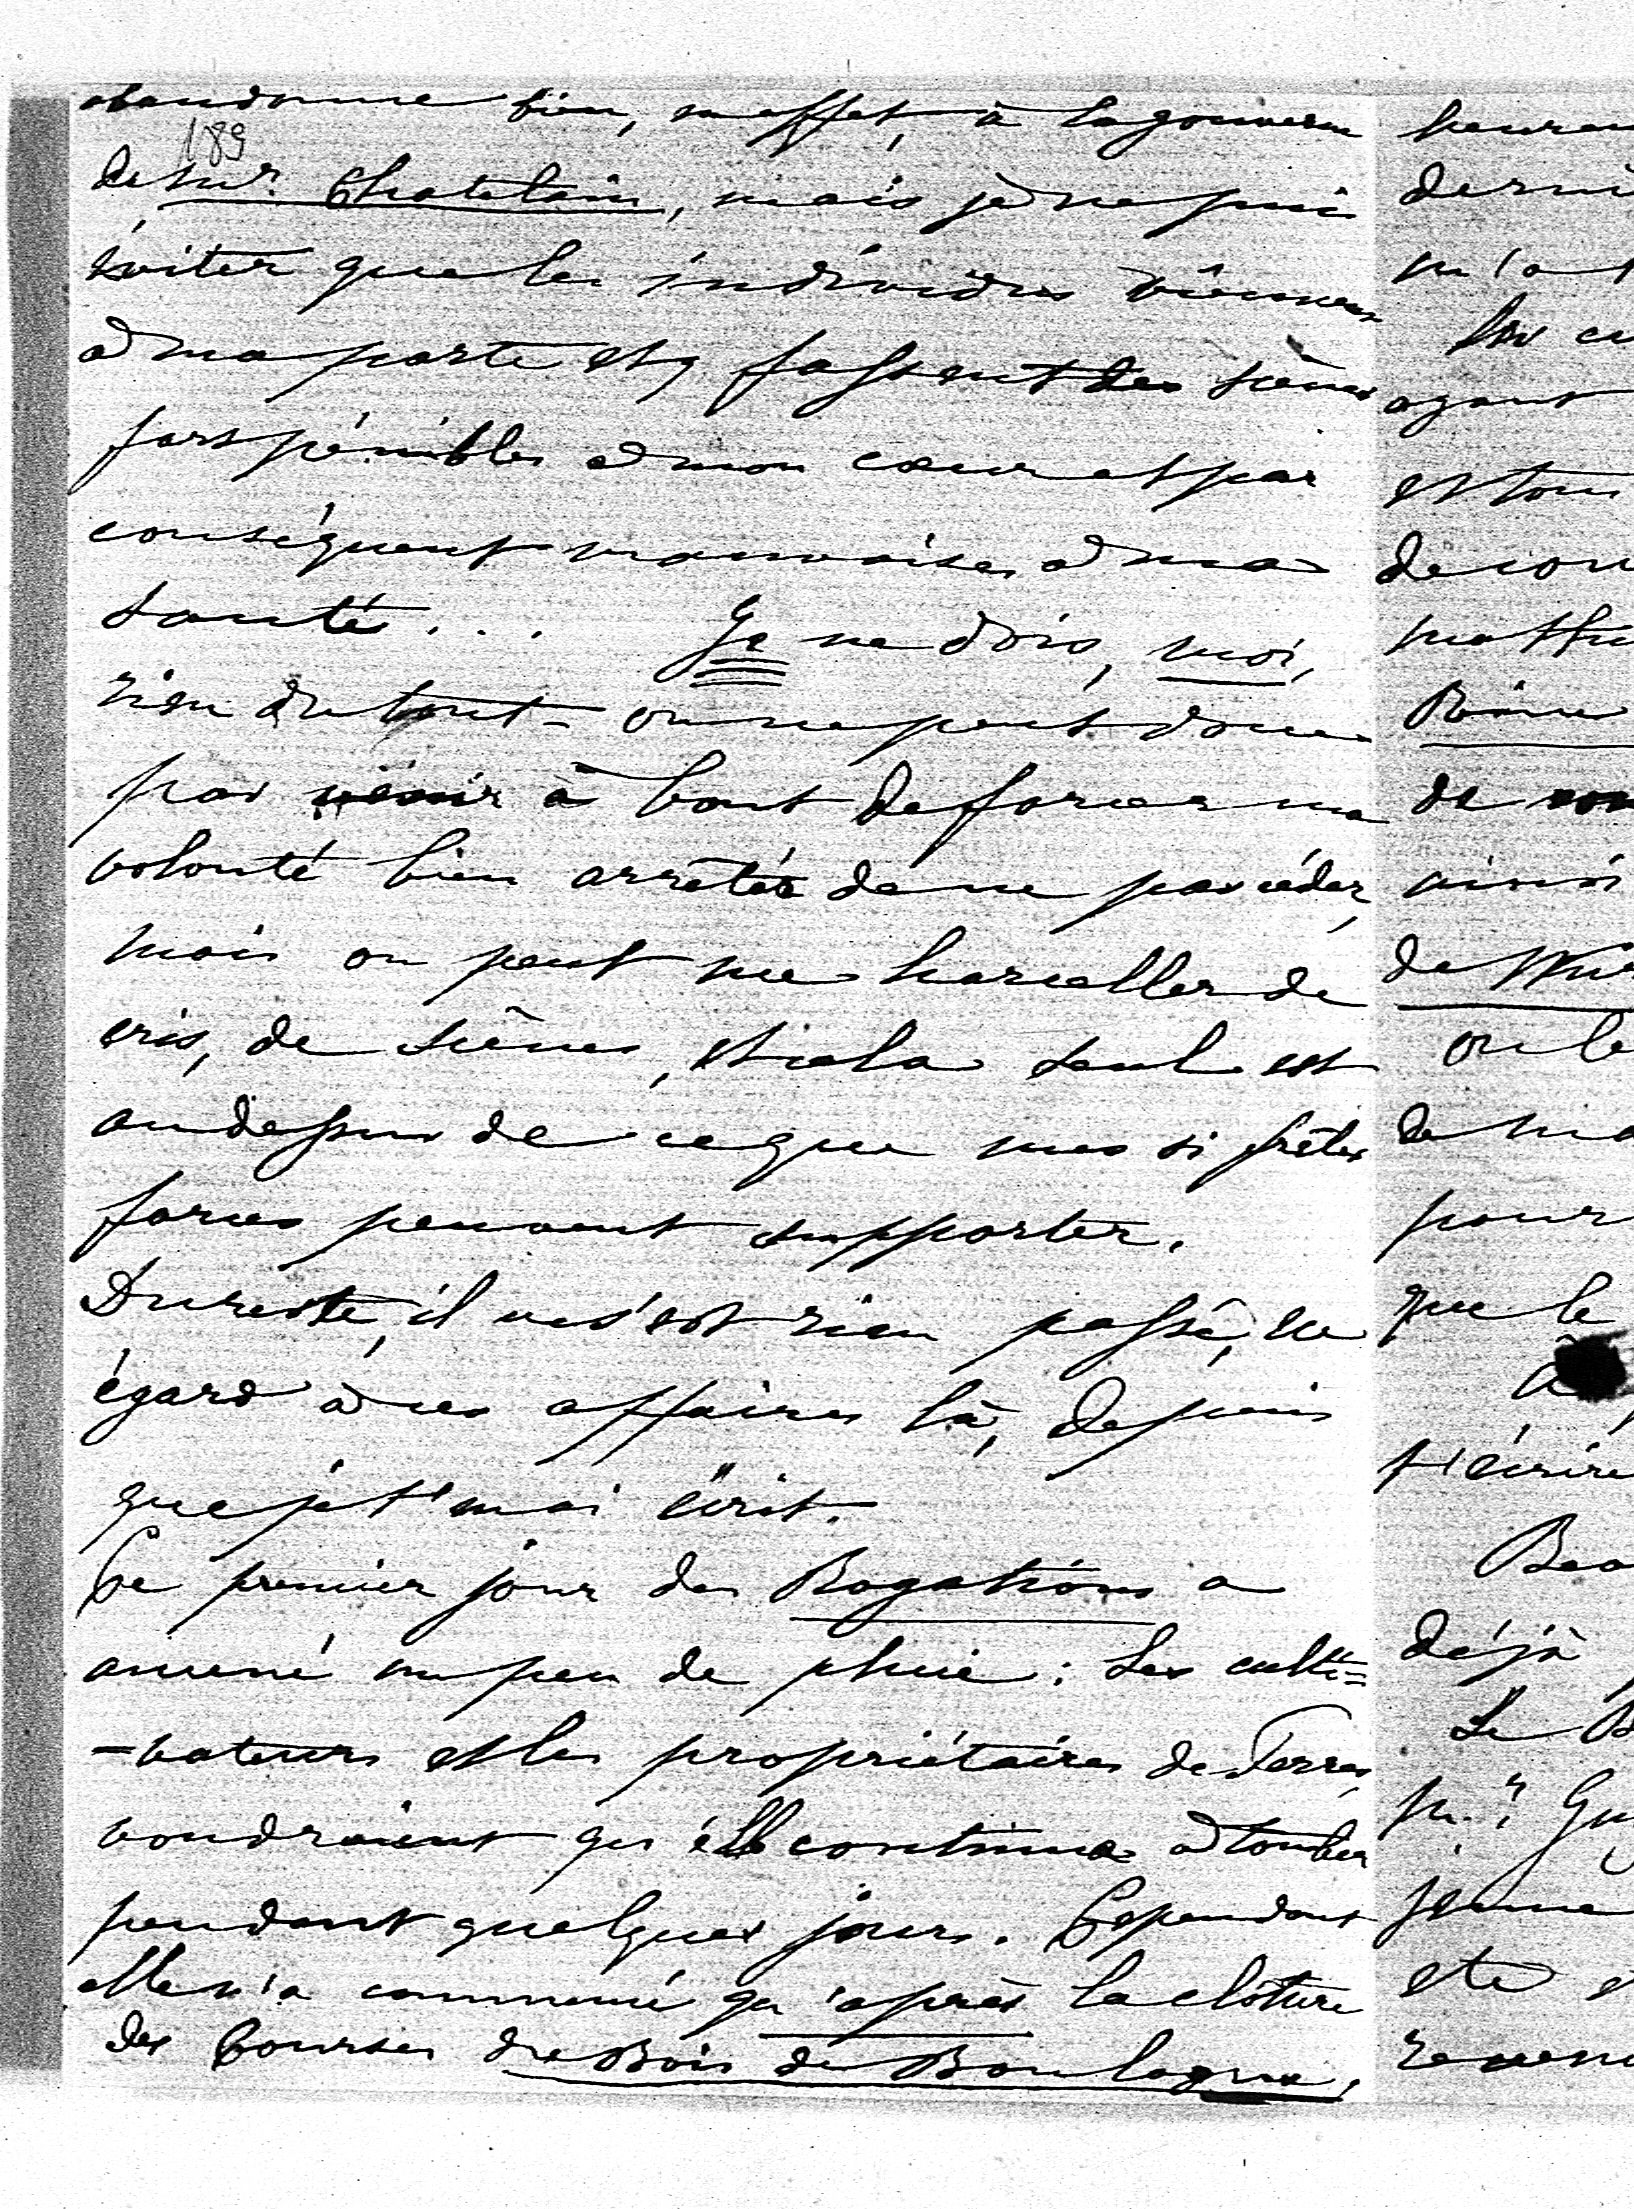 abandonne bien, en effet, à la gouverne
189
de Mr. Chatelain, mais je ne puis
éviter que les individus viennent
à ma porte et y fassent des scènes
fort pénibles à mon cœur et par
conséquent mauvaises à ma
santé... Je ne dois, moi,
rien du tout - on ne peut donc
pas venir à bout de forcer ma
volonté bien arrêtée de ne pas céder,
mais on peut me harceller de
cris, de scènes, et cela seul est
au dessus de ce que mes si frêles
forces peuvent supporter.
Du reste, il ne s'est rien passé, eu
égard à ces affaires là, depuis
que je t'en ai écrit.
Ce premier jour des Rogations a
amené un peu de pluie : Les culti=
=vateurs et les propriétaires de Terres,
voudraient qu'elle continua à tomber
pendant quelques jours. Cependant
elle n'a commencé qu'après la clôture
des Courses du Bois de Boulogne.
déjà
que le
pour
ainsi